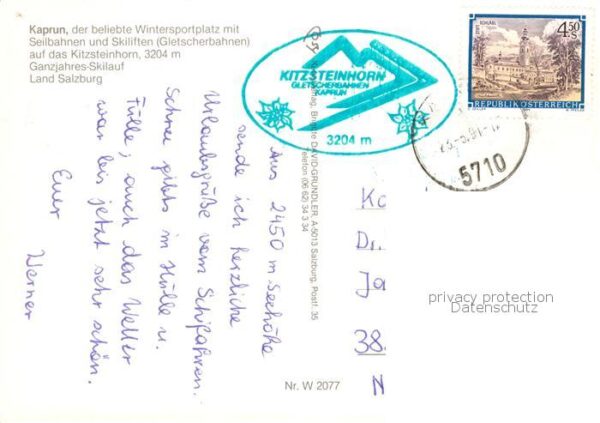 Kaprun, der beliebte Wintersportplatz mit
Seilbahnen und Skiliften (Gletscherbahnen)
auf das Kitzsteinhorn, 3204 m
Ganzjahres-Skilauf
Land Salzburg
KITZSTEINHORN
GLETSCHERBAHNEN
KAPRUN
3204 m
4.50
S
REPUBLIK ÖSTERREICH
5710
Aus 2450 m Seehöhe
sende ich herzliche
Urlaubsgrüße vom Schifahren.
Schnee gibts in Hülle u.
Fülle, auch das Wetter
war bis jetzt sehr schön.
Euer
Werner
Brigitte DAVID-GRÜNDLER, A-5013 Salzburg, Postf. 35
Telefon (06 62) 34 3 34
Kc
Dr.
Ja
38.
N
privacy protection
Datenschutz
Nr. W 2077